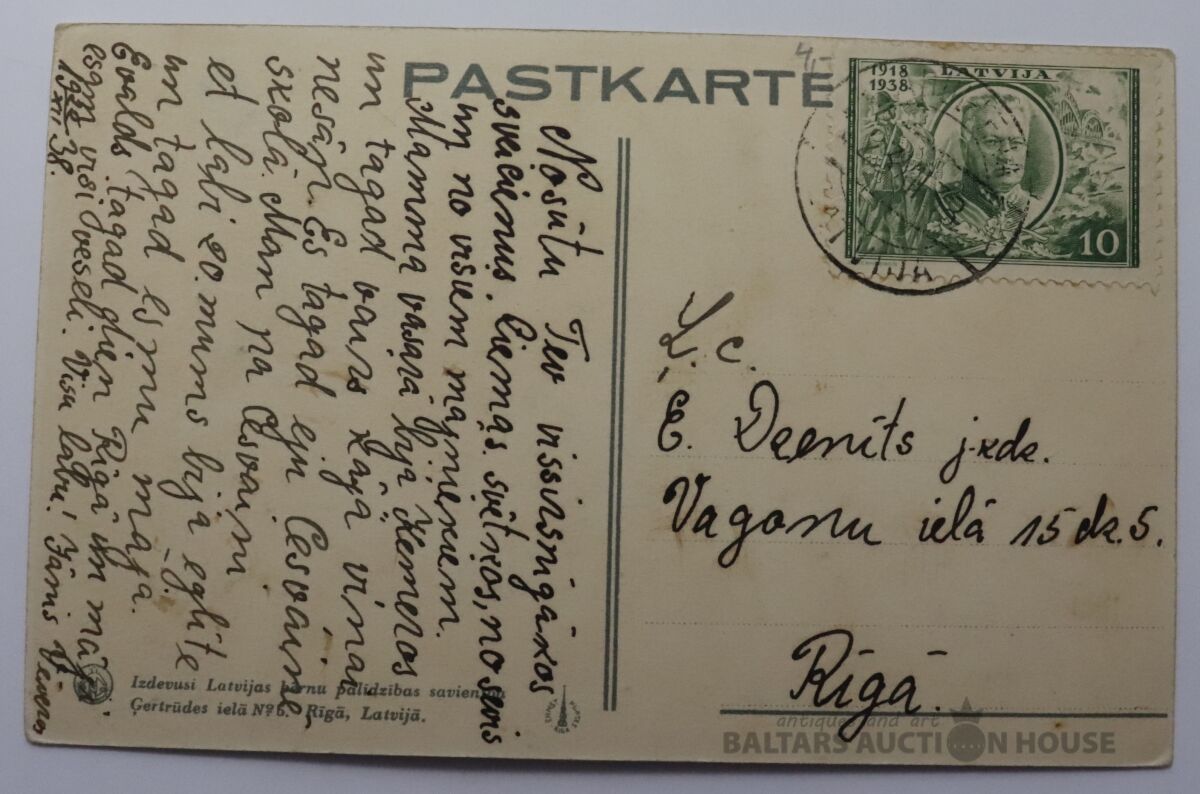 PASTKARTE
4,-
1918
1938
LATVIJA
10
Nosūtu Tev vissirsnīgākos
sveicienus Ciemas svētkos, no sevis
un no visiem mājniekiem.
Mamma vasarā bija Ķemeros
un tagad vairs kāja viņai
nesāp. Es tagad eju Cesvaines
skolā. Mam pa Cesvaini
et labi 20. mums bija eglīte
un tagad esmu mājā.
Evalds tagad dien Rīgā un mājā
esam visi veseli. Visu labu! Jānis
19 38.
XII
Ļ. c.
E. Dzenīts j-kdz.
Vagonu ielā 15 dz. 5.
Rīgā.
Izdevusi Latvijas bērnu palīdzības savienība
Ģertrūdes ielā №6. Rīgā, Latvijā.
RIGA
antiques and art
BALTARS AUCTION HOUSE